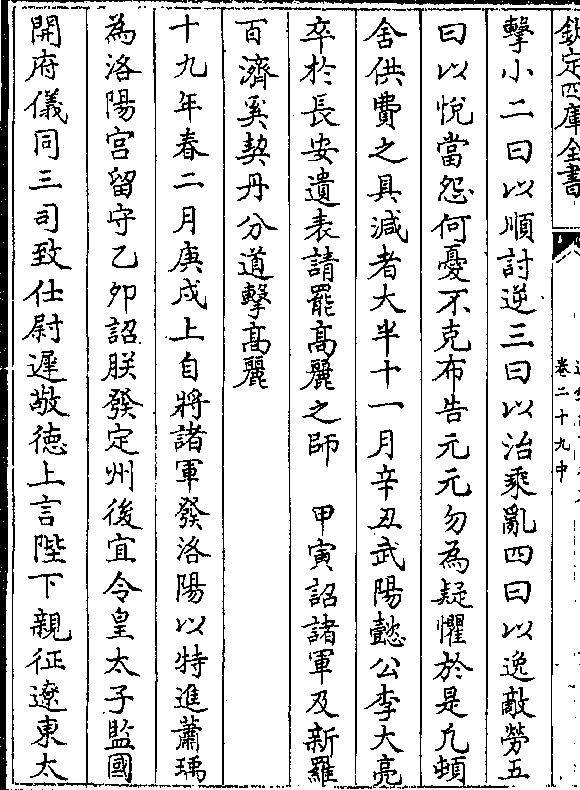 欽定四庫全書
卷二十九中
擊小二曰以順討逆三曰以治乘亂四曰以逸敵勞五
曰以悅當怨何憂不克布告元元勿為疑懼於是凢頓
舍供費之具減者大半十一月辛丑武陽懿公李大亮
卒於長安遺表請罷高麗之師　甲寅詔諸軍及新羅
百濟奚契丹分道擊高麗
十九年春二月庚戌上自將諸軍發洛陽以特進蕭瑀
為洛陽宫留守乙夘詔朕發定州後宜令皇太子監國
開府儀同三司致仕尉遲敬德上言陛下親征遼東太